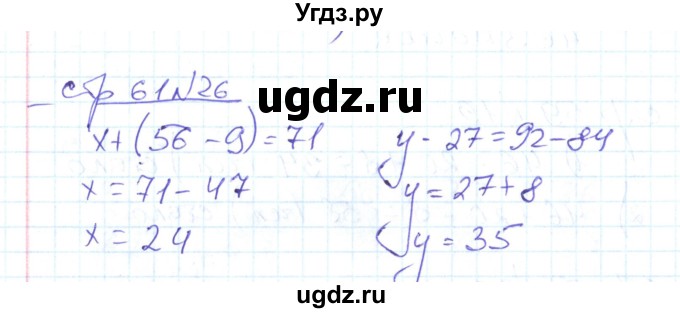 Угдз.ру
стр 61 №26
ugdz.ru
x+(56-9)=71
x=71-47
x=24
y-27=92-84
y=27+8
y=35
ugdz.ru